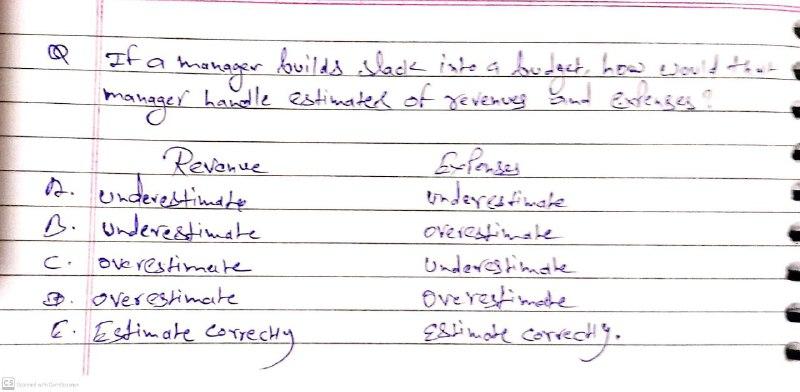 Q If a manager builds slack into a budget, how would that
manager handle estimated of revenues and Expenses?
Revenue Expenses
A. underestimate underestimate
B. Underestimate overestimate
C. overestimate Underestimate
D. overestimate Overestimate
E. Estimate correctly Estimate correctly.
CS Scanned with CamScanner